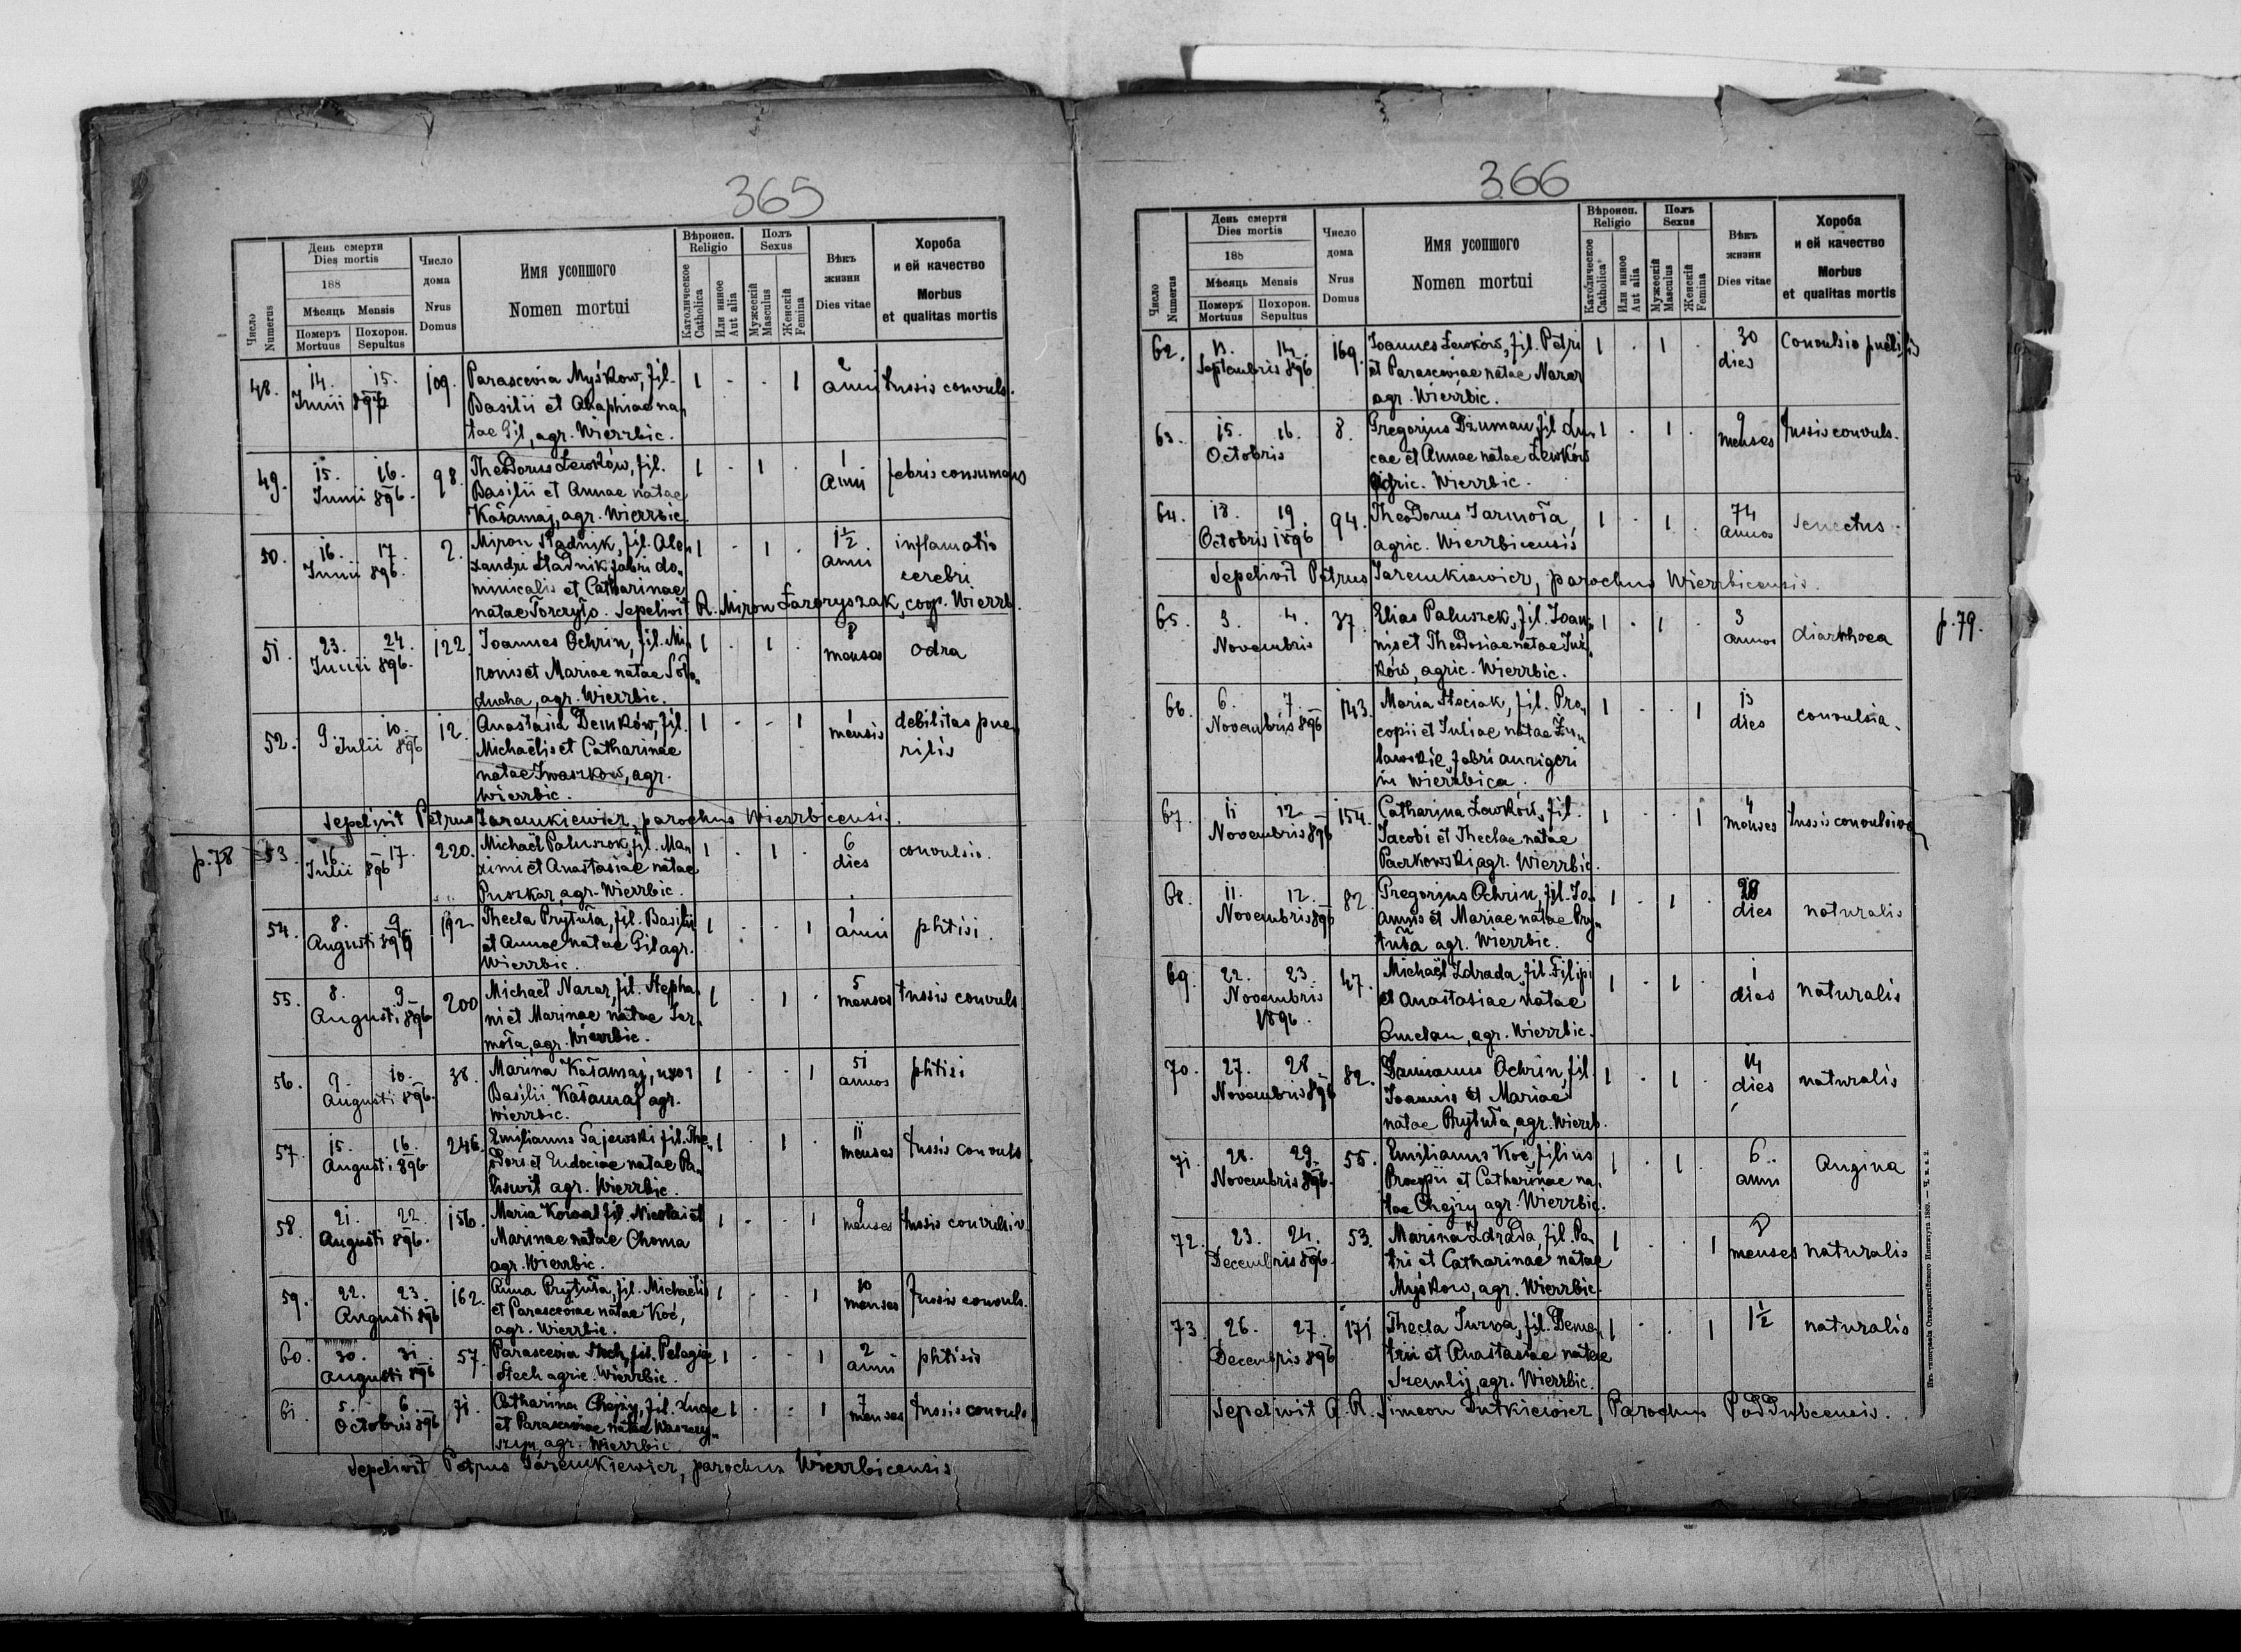 365
Число
Numerus
День смерти
Dies mortis
188
Мѣсяць Mensis
Померъ Похорон.
Mortuus Sepultus
Число
дома
Nrus
Domus
Имя усопшого
Nomen mortui
Вѣроисп.
Religio
Католическое
Catholica
Или инное
Aut alia
Полъ
Sexus
Мужескій
Masculus
Женскій
Femina
Вѣкъ
жизни
Dies vitae
Хороба
и ей качество
Morbus
et qualitas mortis
48. 14. 15. 109. Parascevia Myśkow, fil. 1 - - 1 2
Junii Basilii et Agaphiae na„ anni tussis convuls.
tae Gil, agr. Wierzbic.
49. 15. 16. 98. Theodorus Lewków, fil. 1 - 1 . 1
Junii 896. Basilii et Annae natae anni febris consumans
Kałamaj, agr. Wierzbic.
50. 16. 17. 2. Miron Stadnik, fil. Ale„ 1 - 1 . 1½ inflamatio
Junii 896. xandri Stadnik fabri do„ anni cerebri
minicalis et Catharinae
natae Torczyło. Sepelivit R. Miron Zazoryszak, coop. Wierzb.
51. 23. 24. 122. Joannes Ochrin, fil. Mi„ 1 - 1 . 8
Junii 896. ronis et Mariae natae Soło„ menses odra
ducha, agr. Wierzbic.
52. 9 10. 12. Anastasia Demków, fil. 1 - - 1 1 debilitas pue„
Julii 896 Michaelis et Catharinae mensis rilis
natae Iwaszkow, agr.
Wierzbic.
Sepelivit Petrus Jaremkiewicz, parochus Wierzbicensis.
p. 78 53. 16. 17. 220. Michaël Paluszok, fil. Ma„ 1 . 1 . 6 convulsio.
Julii 896 ximi et Anastasiae natae dies
Puszkar, agr. Wierzbic.
54. 8. 9. 192 Thecla Prytuła, fil. Basilii 1 . . 1 1
Augusti 896 et Annae natae Gil agr. anni phtisi.
Wierzbic.
55. 8. 9 200 Michaël Nazar, fil. Stepha„ 1 . 1 . 5
Augusti 896 ni et Marinae natae Jar„ menses tussis convuls.
moła, agr. Wierzbic.
56. 9. 10. 38. Marina Kałamaj, uxor 1 . . 1 51 phtisi
Augusti 896. Basilii Kałamaj agr. annos
Wierzbic.
57. 15. 16. 246. Emilianus Gajewski fil. The„ 1 . 1 . 11
Augusti 896 odori et Eudociae natae Pa„ menses tussis convuls
liswit agr. Wierzbic.
58. 21. 22. 156. Maria Kowal fil. Nicolai et 1 . . 1 9
Augusti 896. Marinae natae Choma menses tussis convulsiv.
agr. Wierzbic.
59. 22. 23. 162. Anna Prytuła, fil. Michaelis 1 . . 1 10
Augusti 896 et Parasceviae natae Koć, menses tussis convuls.
agr. Wierzbic.
60. 30. 31. 57. Parascevia Stech, fil. Pelagiae 1 . . 1 2
Augusti 896 Stech agric. Wierzbic. anni phtisis
61. 5. 6. 71. Catharina Chejzy, fil. Lucae 1 . . 1 7
Octobris 896 et Parasceviae natae Waszczy„ menses tussis convuls.
szyn, agr. Wierzbic
Sepelivit Petrus Jaremkiewicz, parochus Wierzbicensis
366
Число
Numerus
День смерти
Dies mortis
188
Мѣсяць Mensis
Померъ Похорон.
Mortuus Sepultus
Число
дома
Nrus
Domus
Имя усопшого
Nomen mortui
Вѣроисп.
Religio
Католическое
Catholica
Или инное
Aut alia
Полъ
Sexus
Мужескій
Masculus
Женскій
Femina
Вѣкъ
жизни
Dies vitae
Хороба
и ей качество
Morbus
et qualitas mortis
62. 13. 14. 169. Joannes Lewków, fil. Petri 1 . 1 . 30 Convulsio puerilis
Septembris 896 et Parasceviae natae Nazar dies
agr. Wierzbic.
63. 15. 16. 8. Gregorius Dziuman, fil. Lu„ 1 . 1 . 9 tussis convuls.
Octobris cae et Annae natae Lewków menses
agric. Wierzbic.
64. 18. 19. 94. Theodorus Jarmoła, 1 . 1 74 senectus.
Octobris 1896 agric. Wierzbicensis annos
Sepelivit Petrus Jaremkiewicz, parochus Wierzbicensis.
65. 3. 4. 37. Elias Paluszek, fil. Joan„ 1 . 1 . 3 p. 79.
Novembris nis et Theodosiae natae Jur„ annos diarrhoea
ków, agric. Wierzbic.
66. 6. 7. 143. Maria Steciak, fil. Pro„ 1 . . 1 13
Novembris 896 copii et Juliae natae Żu„ dies convulsia.
lawskie, fabri aurigeri
in Wierzbica.
67. 11 12. 154. Catharina Lewków, fil. 1 . . 1 4
Novembris 896 Jacobi et Theclae natae menses tussis convulsiva
Paczkowski, agr. Wierzbic.
68. 11. 12. 82. Gregorius Ochrin, fil. Jo„ 1 . 1 . 28
Novembris 896 annis et Mariae natae Pry„ dies naturalis
tuła agr. Wierzbic.
69. 22. 23. 47. Michaël Zdrada, fil. Filipi 1 . 1 . 1
Novembris et Anastasiae natae dies naturalis
1896. Omelan, agr. Wierzbic.
70. 27. 28. 82. Damianus Ochrin, fil. 1 . 1 . 14
Novembris 896 Joannis et Mariae dies naturalis
natae Prytuła, agr. Wierzb.
71. 28. 29. 55. Emilianus Koć, filius 1 . 1 . 6 Angina
Novembris 896. Procopii et Catharinae na„ anni
tae Chejzy agr. Wierzbic.
72. 23. 24. 53. Marina Zdrada, fil. Pe„ 1 . . 1 2
Decembris 896. tri et Catharinae natae menses naturalis
Myśkow, agr. Wierzbic.
73. 26. 27. 171 Thecla Jurwa, fil. Deme„ 1 . . 1 1½ naturalis
Decembris 896 trii et Anastasiae natae
Szemlij, agr. Wierzbic.
Sepelivit A. R. Simeon Dutkiewicz, Parochus Poddubcensis.
Изъ типографіи Ставропигійского Института 1889. — Ч. п. л. 2.